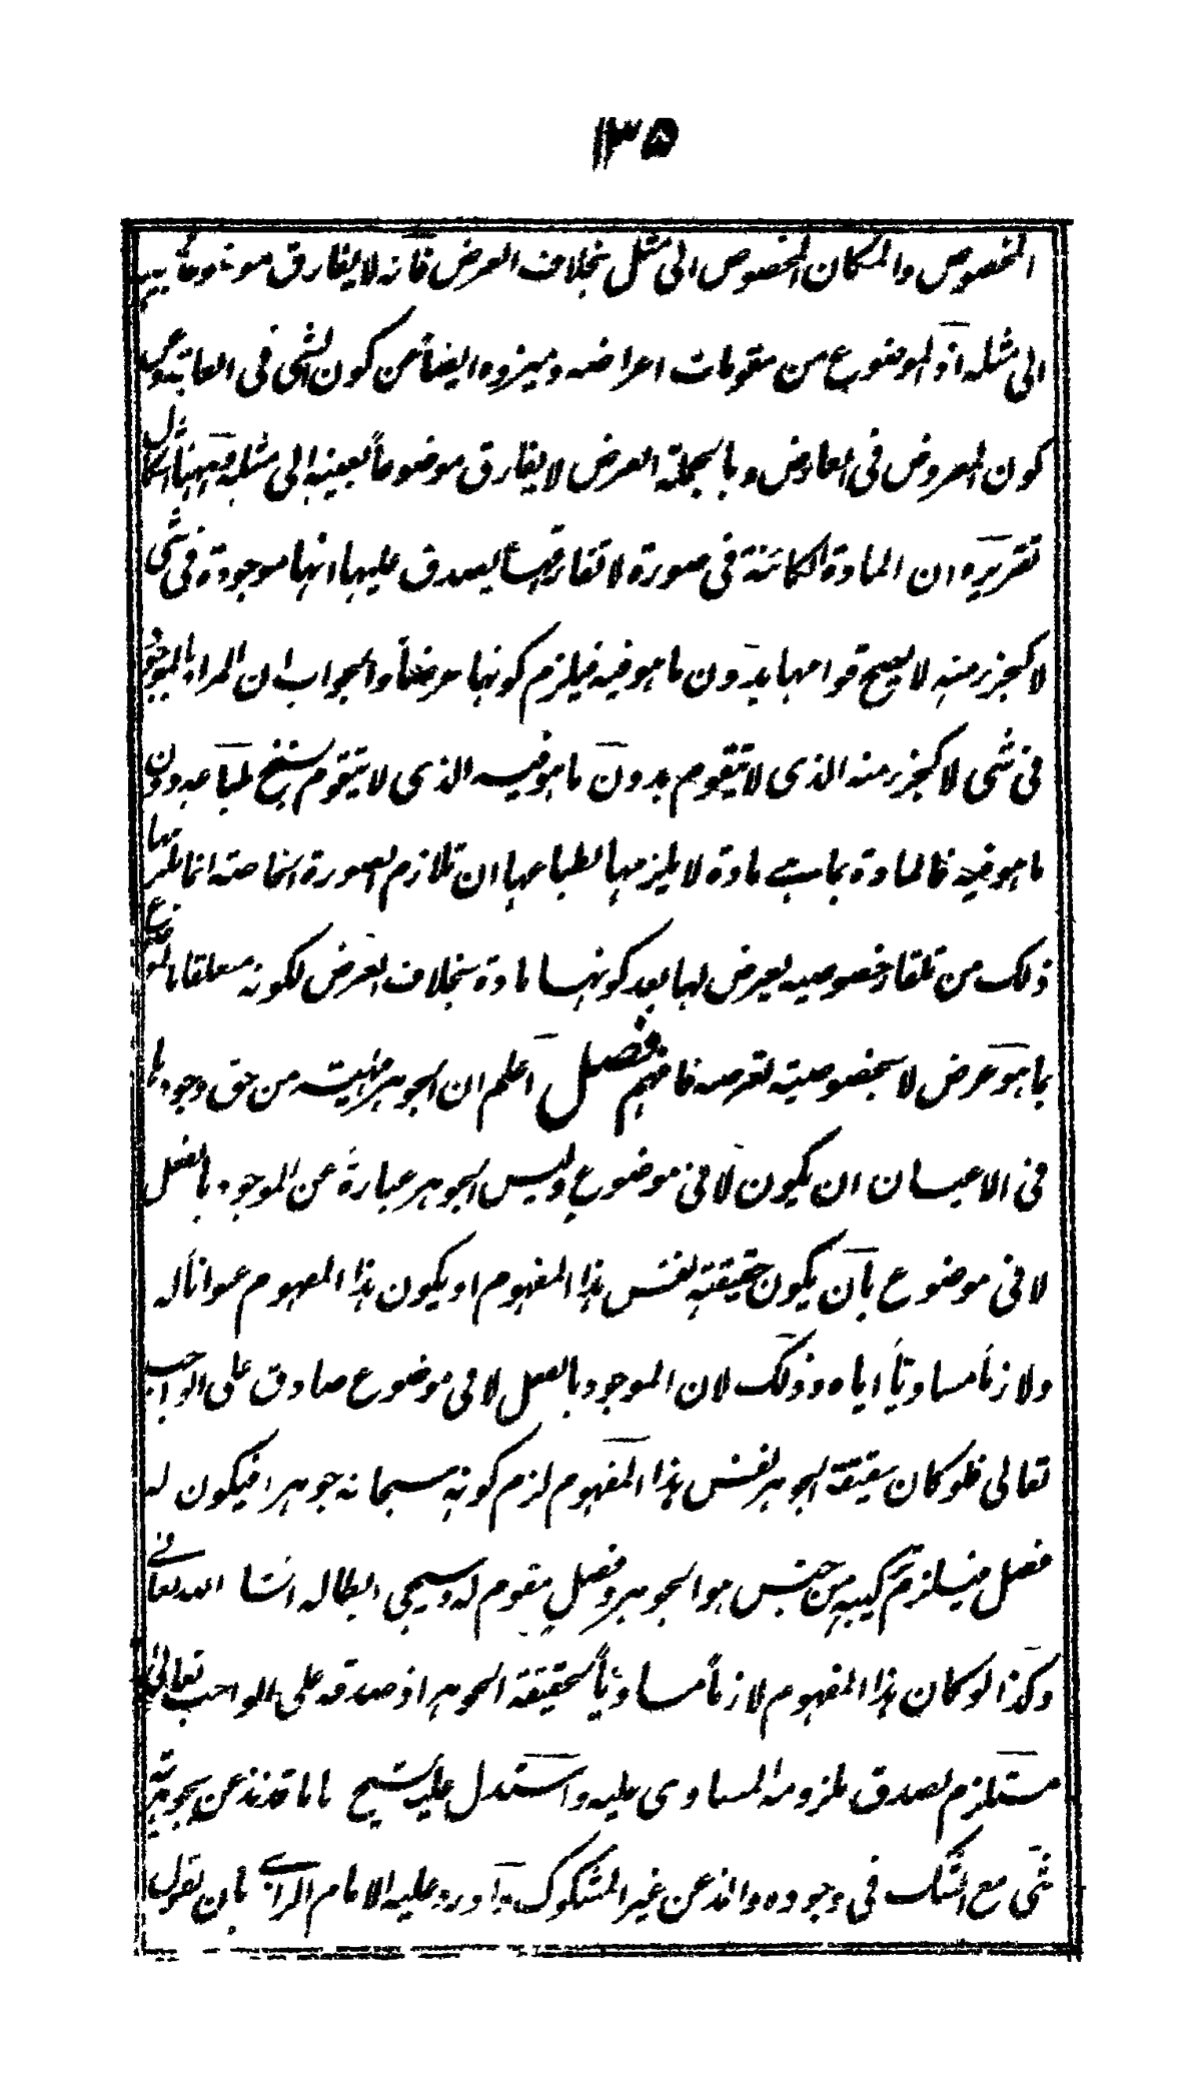 ١٣٥
المخصوص والمكان المخصوص الى مثل بخلاف العرض فانه لا يفارق موضوعا بعينه
الى مثله اذ الموضوع من مقومات اعراضه ويميزوه ايضاً من كون الشئ فى الغاية وعن
كون المعروض فى العارض وبالجملة العرض لا يفارق موضوعاً بعينه الى مثله فههنا اشكال
تقريره ان المادة الكائنة فى صورة لا تفارقها يصدق عليها انها موجودة فى شئ
لا كجزء منه لا يصح قوامها بدون ما هو فيه فيلزم كونها عرضاً والجواب ان المراد بالموجود
فى شئ لا كجزء منه الذى لا يتقوم بدون ما هو فيه الذى لا يتقوم بسنخ طباعه دون
ما هو فيه فالمادة بما هى مادة لا يلزمها لطباعها ان تلازم الصورة الخاصة انما يلزمها
ذلك من تلقاء خصوصيه يعرض لها بعد كونها مادة بخلاف العرض لكونه متعلقا بالموضوع
بما هو عرض لا بخصوصيته تعرضه فافهم فصل اعلم ان الجوهر مهيته من حق وجودها
فى الاعيان ان يكون لا فى موضوع وليس الجوهر عبارة عن الموجود بالفعل
لا فى موضوع بان يكون حقيقته نفس هذا المفهوم او يكون هذا المفهوم عنوانا له
ولازماً مساوياً اياه وذلك لان الموجود بالفعل لا فى موضوع صادق على الواجب
تعالى فلو كان حقيقة الجوهر نفس هذا المفهوم لزم كونه سبحانه جوهرا فيكون له
فصل فيلزم تركيبه من جنس هو الجوهر وفصل مقوم له وسيجئ ابطاله انشا الله تعالى
وكذا لو كان هذا المفهوم لازماً مساوياً لحقيقة الجوهر اذ صدقه على الواجب تعالى
مستلزم لصدق ملزومه المساوى عليه واستدل عليه الشيخ باناقد نذعن بجوهرية
شئ مع الشك فى وجوده والمذعن غير المشكوك واورد عليه الامام الرازى بان يقول